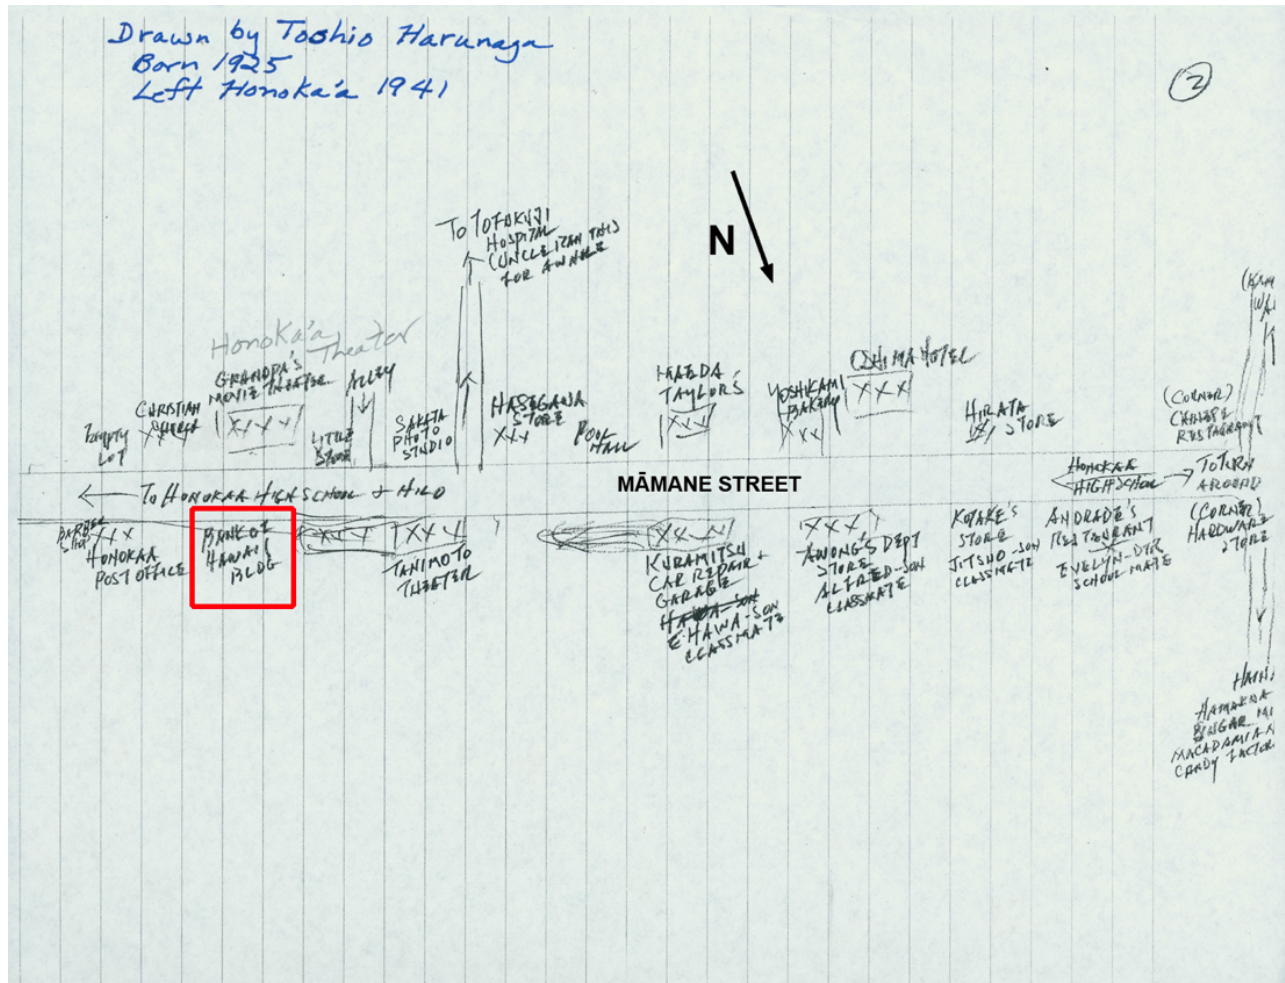 Drawn by Toshio Harunaga
Born 1925
Left Honoka'a 1941
2
N
To
HOSPITAL
(UNCLE RAN THIS
FOR AWHILE
Honoka'a
Theater
GRANDPA'S
MOVIE THEATER
ALLEY
CHRISTIAN
CHURCH
XXX
XXX
EMPTY
LOT
LITTLE
STORE
SAKATA
PHOTO
STUDIO
HASEGAWA
STORE
XXX
POOL
HALL
MAEDA
TAYLOR'S
XXX
YOSHIKAMI
BAKERY
XXX
OSHIMA HOTEL
XXX
HIRATA
STORE
(CORNER)
RESTAURANT
MĀMANE STREET
← TO HONOKAA HIGH SCHOOL & HILO
HONOKAA
HIGH SCHOOL
TO TURN
AROUND
BARBER
SHOP
XXX
HONOKAA
POST OFFICE
BANK OF
HAWAII
BLDG
XXX
XXX
TANIMOTO
THEATER
XXX
KURAMITSU
CAR REPAIR &
GARAGE
E. HAWA - SON
CLASSMATE
XXX
AWONG'S DEPT
STORE
ALFRED - SON
CLASSMATE
KOTAKE'S
STORE
JITSUO - SON
CLASSMATE
ANDRADE'S
RESTAURANT
EVELYN - DTR
SCHOOL MATE
(CORNER)
HARDWARE
STORE
HAMAKUA
MACADAMIA N
CANDY FACTOR